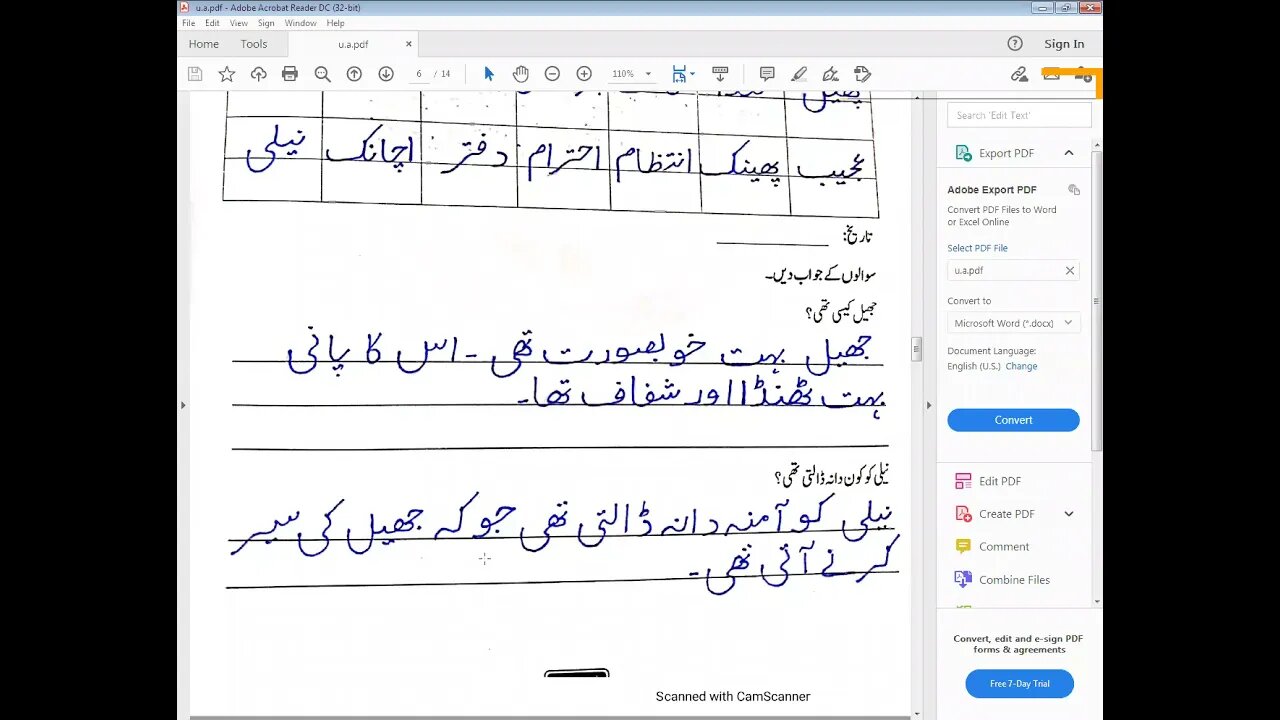 u.a.pdf - Adobe Acrobat Reader DC (32-bit)
File Edit View Sign Window Help
Home Tools u.a.pdf × Sign In
6 / 14 110%
پھیل
عجیب پھینک انتظام احترام دفتر اچانک نیلی
تاریخ: ____________
سوالوں کے جواب دیں۔
جھیل کیسی تھی؟
جھیل بہت خوبصورت تھی ۔ اس کا پانی
بہت ٹھنڈا اور شفاف تھا۔
نیلی کو کون دانہ ڈالتی تھی؟
نیلی کو آمنہ دانہ ڈالتی تھی جو کہ جھیل کی سیر
کرنے آئی تھی۔
Scanned with CamScanner
Search 'Edit Text'
Export PDF
Adobe Export PDF
Convert PDF Files to Word
or Excel Online
Select PDF File
u.a.pdf ×
Convert to
Microsoft Word (*.docx)
Document Language:
English (U.S.) Change
Convert
Edit PDF
Create PDF
Comment
Combine Files
Convert, edit and e-sign PDF
forms & agreements
Free 7-Day Trial